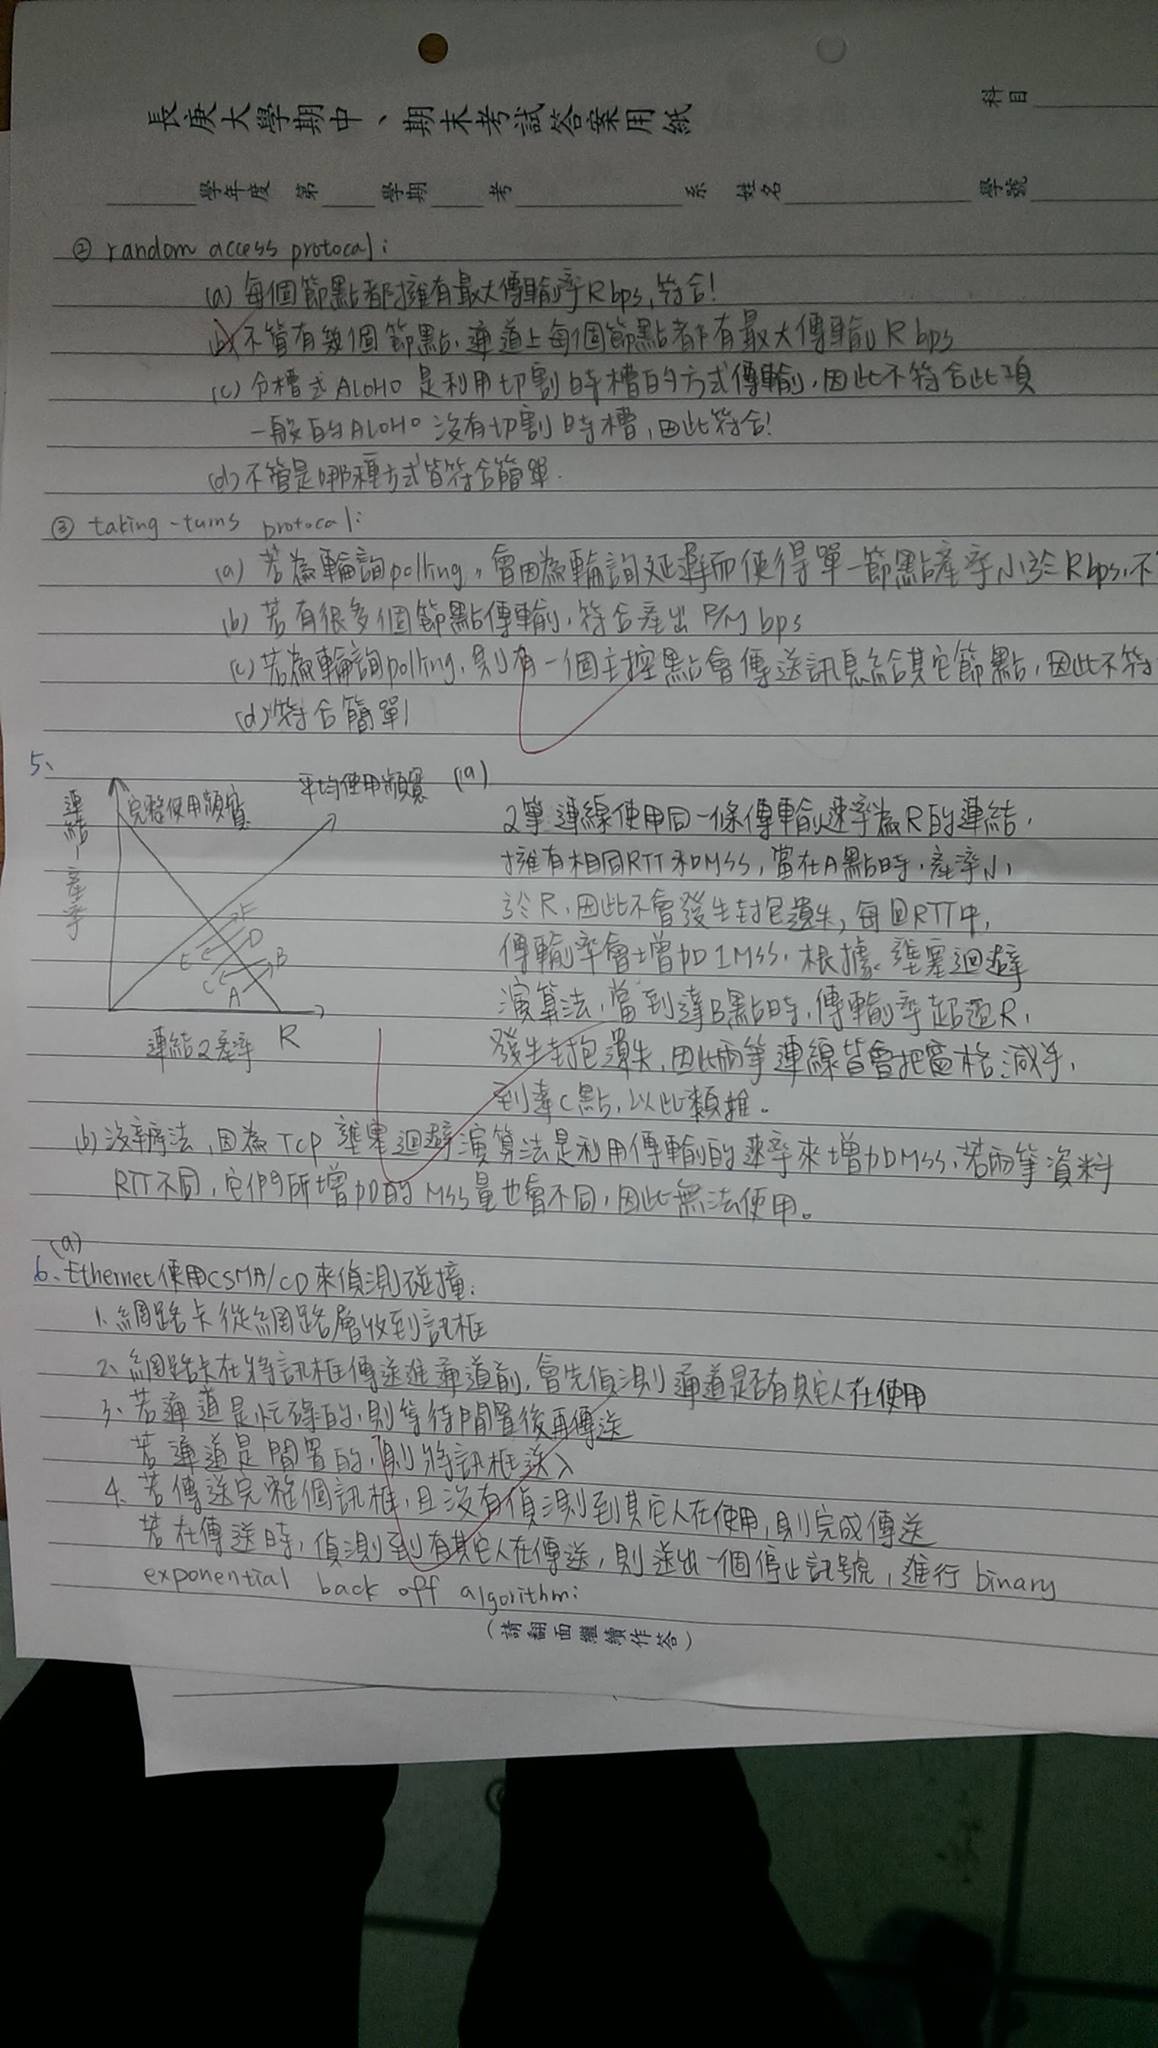 長庚大學期中、期末考試答案用紙
科目
學年度 第 學期 考 系 姓名 學號
② random access protocal:
(a) 每個節點都擁有最大傳輸率R bps, 符合!
(b) 不管有幾個節點, 通道上每個節點都有最大傳輸 R bps
(c) 分槽式 ALOHO 是利用切割時槽的方式傳輸, 因此不符合此項
一般的 ALOHO 沒有切割時槽, 因此符合!
(d) 不管是哪種方式皆符合簡單.
③ taking-turns protocal:
(a) 若為輪詢polling, 會因為輪詢延遲而使得單一節點產率小於 R bps, 不
(b) 若有很多個節點傳輸, 符合產出 R/M bps
(c) 若為輪詢polling, 則有一個主控點會傳送訊息給其它節點, 因此不符
(d) 符合簡單!
5、
連結1產率
完整使用頻寬
平均使用頻寬
(a)
E
D
B
C
A
連結2產率 R
2筆連線使用同一條傳輸速率為R的連結,
擁有相同RTT和MSS, 當在A點時, 產率小
於 R, 因此不會發生封包遺失, 每回RTT中,
傳輸率會增加 1 MSS, 根據壅塞迴避
演算法, 當到達B點時, 傳輸率超過R,
發生封包遺失, 因此兩筆連線皆會把窗格減半,
到達C點, 以此類推。
(b) 沒辦法, 因為 TCP 壅塞迴避演算法是利用傳輸的速率來增加MSS, 若兩筆資料
RTT不同, 它們所增加的MSS量也會不同, 因此無法使用。
(a)
6、Ethernet使用CSMA/CD來偵測碰撞:
1、網路卡從網路層收到訊框
2、網路卡在將訊框傳送進通道前, 會先偵測通道是否有其它人在使用
3、若通道是忙碌的, 則等待閒置後再傳送
若通道是閒置的, 則將訊框送入
4、若傳送完整個訊框, 且沒有偵測到其它人在使用, 則完成傳送
若在傳送時, 偵測到有其它人在傳送, 則送出一個停止訊號, 進行 binary
exponential back off algorithm:
(請翻面繼續作答)